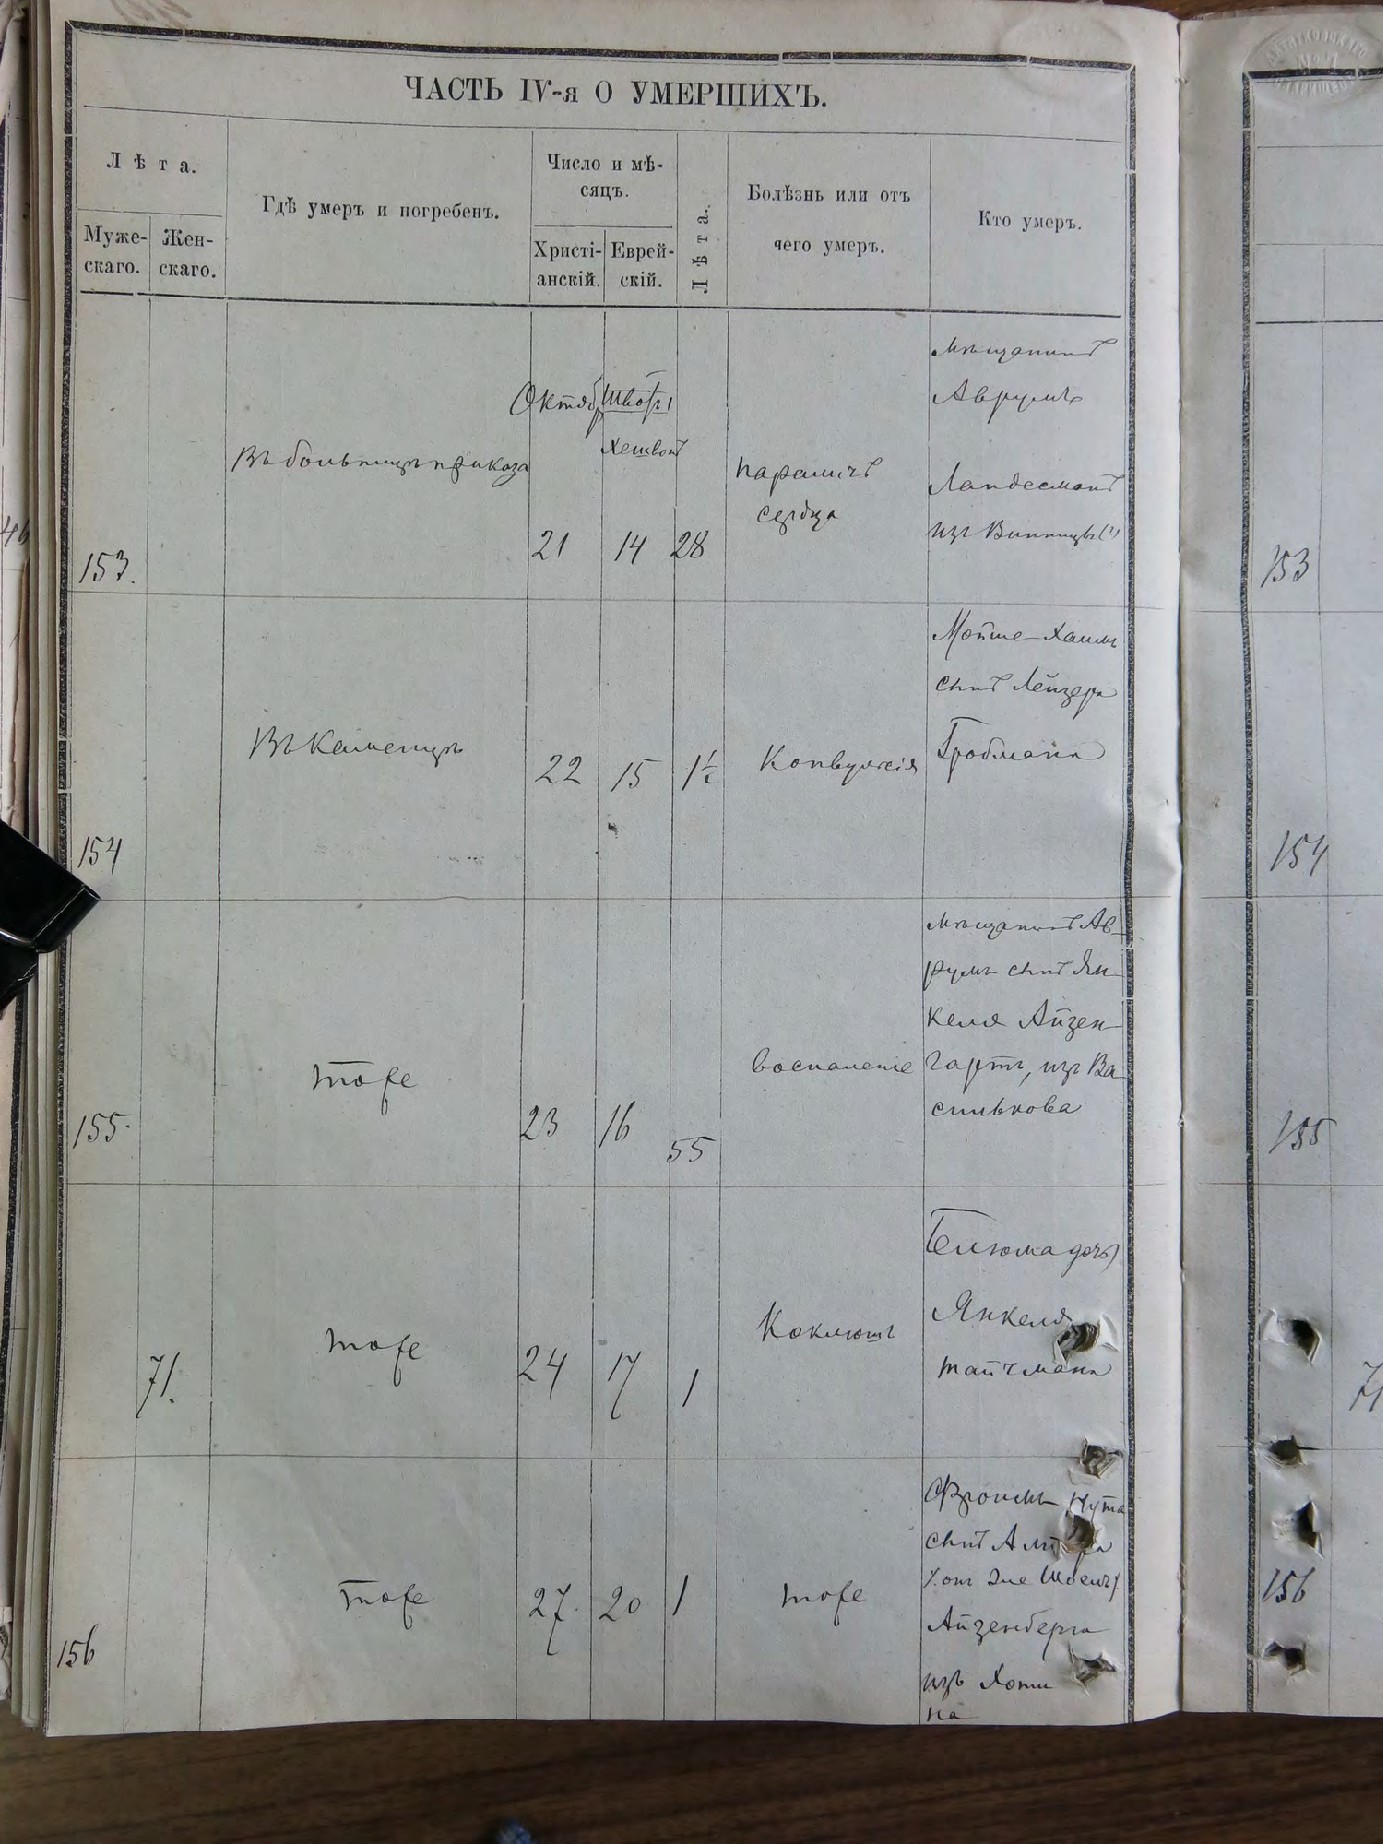 ЧАСТЬ IV-я О УМЕРШИХЪ.
Лѣта.
Муже-
скаго.
Жен-
скаго.
Гдѣ умеръ и погребенъ.
Число и мѣ-
сяцъ.
Христі-
анскій.
Еврей-
скій.
Лѣта.
Болѣзнь или отъ
чего умеръ.
Кто умеръ.
153.
Въ больницѣ приказа
Октяб
21
14
28
параличъ
сердца
мѣщанинъ
Аврумъ
Ландесманъ
изъ Винницы
153
154
Въ Каменцѣ
22
15
1½
Конвульсія
Мойше-Хаимъ
сынъ Лейзера
Гробмана
154
155.
тоже
23
16
55
воспаленіе
мѣщанинъ Ав-
румъ сынъ Ян-
келя Айзен-
гартъ, изъ Ва
силькова
155
71.
тоже
24
17
1
Коклюшъ
дочь
Янкеля
Тайчмана
71
156
тоже
27.
20
1
тоже
Нута
сынъ
Айзенберга
изъ Хоти
на
156